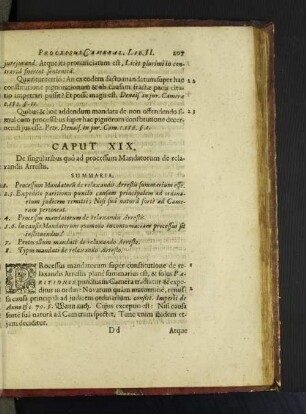 PROCESSUS CAMERAL. LIB. II. 207
juerjurand. Atque ita pronunciatum est, Licet plurimi in contraria fuerint sententia.
Quaritur tertiò: An ex eodem facto mandatum super hac
constitutione pignorationum & ob causam fractæ pacis citatio
impetrari possit? Et posse magis est. Denais. in jur. Camera
Quibus & hoc addendum mandata de non offendendo
super hac pignorum constitutione
Denais. in jur. Cam.
CAPUT XIX,
De singularibus quò ad processum Mandatorum de relaxandis Arrestis.
SUMMARIA.
1. Processum Mandatorum de relaxandis Arrestis summarium esse.
2.3. Expedito paritionis puncto causam principalem ad ordinarium
judicem remitti; Nisi sua naturâ fortè ad Cameram
pertineat.
4. Processus mandatorum de relaxandis Arrestis.
5.6. In causis Mandatorum quomodo in contumaciam processus sit
instituendus?
7. Protocollum mandati de relaxando Arresto.
8. Typus mandati de relaxandis Arrestis.
PRocessus mandatorum super constitutione de relaxandis
Arrestis planè summarius est, & solùm PARITIONIS
punctum in Camera tractatur & expeditur
in ordine Novarum quàm maximè, remissa
causa principali ad judicem ordinarium. constit. Imperii de
Anno &c. 70. §. Wann auch. Cujus exceptio est: Nisi causa
fortè sui naturâ ad Cameram spectet, Tunc enim ibidem etjam
deciditur.
Dd Atque